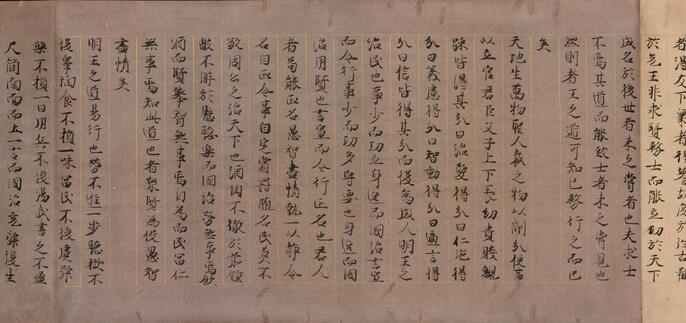 於先王非求賢務士而能立功於天下
成名於後世者未之嘗有也夫求士
不爲其道而能致士者未之嘗見也
然則先王之道可知已務行之而已
矣
天地生萬物聖人裁之物以制分便事
以立官君臣父子上下長幼貴賤親
踈皆得其分曰治愛得分曰仁施得
分曰義慮得分曰智動得分曰適言得
分曰信皆得其分而後爲成人明王之
治民也事少而功立身逸而國治言寡
而令行事少而功多守要也身逸而國
治用賢也言寡而令行正名也君人
者苟能正名愚智盡情執一以静令
名自正令事自定賞罸隨名民莫不
敬周公之治天下也酒肉不徹於前鍾
鼓不解於懸聽樂而國治勞無事焉飲
酒而賢舉智無事焉自爲而民富仁
無事焉知此道也者衆賢爲役愚智
盡情矣
明王之道易行也勞不進一步聽獄不
後皋陶食不損一味富民不後虞舜
樂不損一日用兵不後湯武書之不盈
尺簡南面而立一言而國治堯舜復生